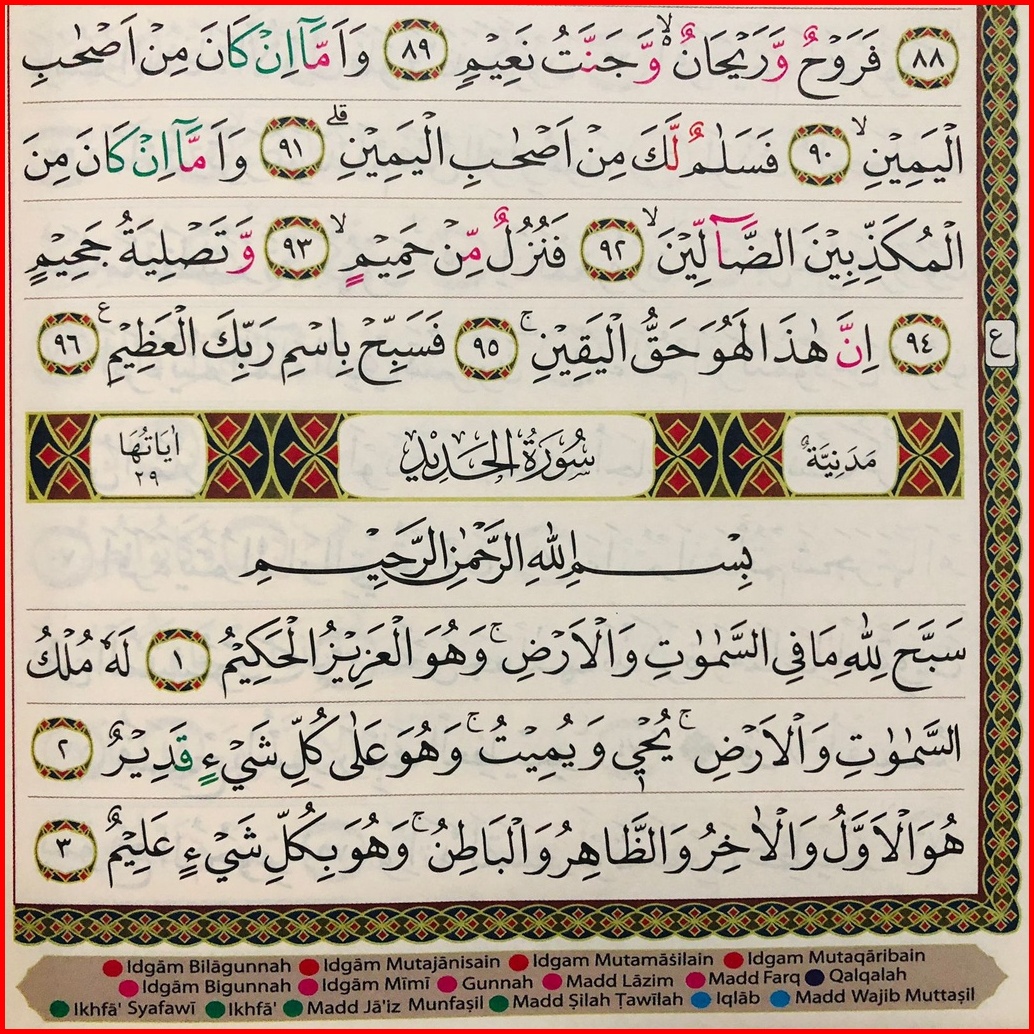 ٨٨ فَرَوْحٌ وَّرَيْحَانٌ ۙ وَّجَنَّتُ نَعِيْمٍ ٨٩ وَاَمَّآ اِنْ كَانَ مِنْ اَصْحٰبِ
الْيَمِيْنِ ۙ ٩٠ فَسَلٰمٌ لَّكَ مِنْ اَصْحٰبِ الْيَمِيْنِ ۗ ٩١ وَاَمَّآ اِنْ كَانَ مِنَ
الْمُكَذِّبِيْنَ الضَّآلِّيْنَ ۙ ٩٢ فَنُزُلٌ مِّنْ حَمِيْمٍ ۙ ٩٣ وَّتَصْلِيَةُ جَحِيْمٍ
٩٤ اِنَّ هٰذَا لَهُوَ حَقُّ الْيَقِيْنِ ۚ ٩٥ فَسَبِّحْ بِاسْمِ رَبِّكَ الْعَظِيْمِ ع ٩٦
ع
مَدَنِيَّةٌ سُوْرَةُ الْحَدِيْدِ اٰيَاتُهَا ٢٩
بِسْمِ اللّٰهِ الرَّحْمٰنِ الرَّحِيْمِ
سَبَّحَ لِلّٰهِ مَا فِى السَّمٰوٰتِ وَالْاَرْضِ ۚ وَهُوَ الْعَزِيْزُ الْحَكِيْمُ ١ لَهٗ مُلْكُ
السَّمٰوٰتِ وَالْاَرْضِ ۚ يُحْيٖ وَيُمِيْتُ ۚ وَهُوَ عَلٰى كُلِّ شَيْءٍ قَدِيْرٌ ٢
هُوَ الْاَوَّلُ وَالْاٰخِرُ وَالظَّاهِرُ وَالْبَاطِنُ ۚ وَهُوَ بِكُلِّ شَيْءٍ عَلِيْمٌ ٣
Idgām Bilāgunnah Idgām Mutajānisain Idgam Mutamāṡilain Idgam Mutaqāribain
Idgām Bigunnah Idgām Mīmī Gunnah Madd Lāzim Madd Farq Qalqalah
Ikhfā' Syafawī Ikhfā' Madd Jā'iz Munfaṣil Madd Ṣilah Ṭawīlah Iqlāb Madd Wajib Muttaṣil